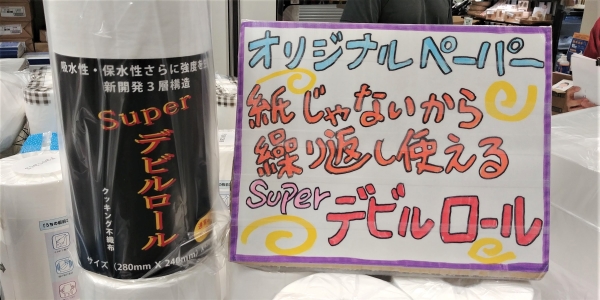 吸水性・保水性さらに強度を
新開発3層構造
Super
デビルロール
クッキング不織布
サイズ(280mm X 240mm)
オリジナルペーパー
紙じゃないから
繰り返し使える
Super
デビルロール